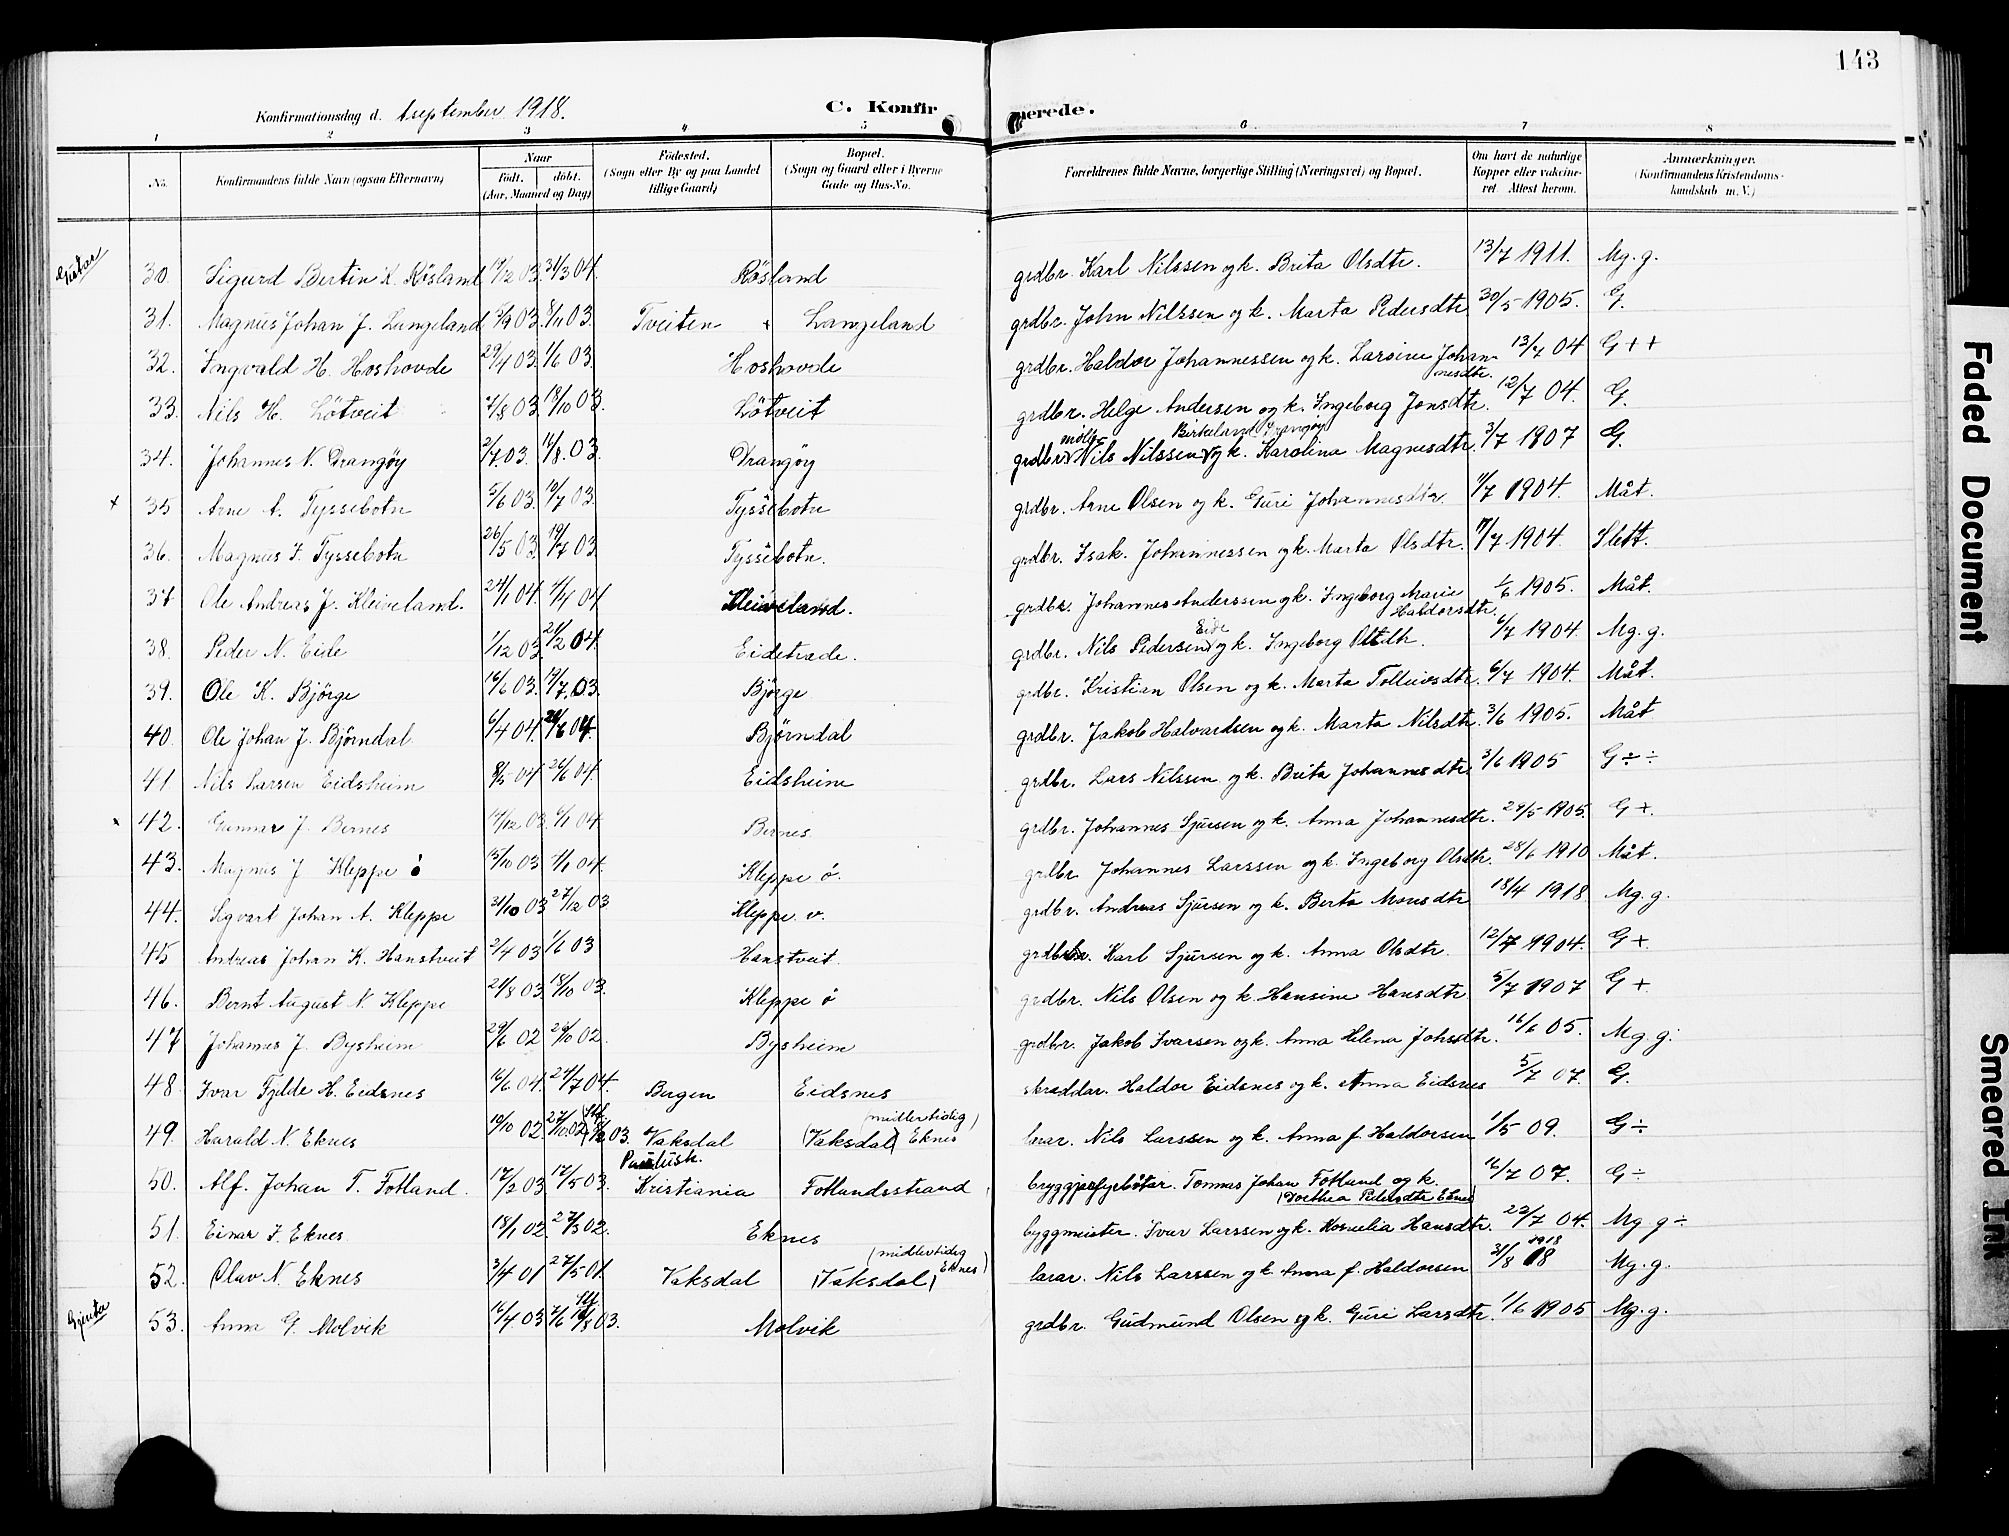 143
Konfirmationsdag d. 1 september 1918. C. Konfirmerede.
1 2 3 4 5 6 7 8
No. Konfirmandens fulde Navn (ogsaa Efternavn) Naar Født. døbt. (Aar, Maaned og Dag) Fødested. (Sogn eller By og paa Landet tillige Gaard) Bopæl. (Sogn og Gaard eller i Byerne Gade og Hus-No. Forældrenes fulde Navne, borgerlige Stilling (Næringsvei) og Bopæl. Om havt de naturlige Kopper eller vakcineret. Attest herom. Anmærkninger. (Konfirmandens Kristendomskundskab m. V.)
Gutar
30. Sigurd Bertin K. Rösland 17/12 03. 31/3 04. Rösland grdbr. Karl Nilssen og k. Brita Olsdtr. 13/7 1911. Mg. g.
31. Magnus Johan J. Langeland 5/9 03. 8/11 03. Tveiten x Langeland grdbr. John Nilssen og k. Marta Pedersdtr. 30/5 1905. G.
32. Ingvald H. Hoshovde 29/4 03. 1/6 03. Hoshovde grdbr. Haldor Johannessen og k. Larsine Johannesdtr. 13/7 04 G + +
33. Nils H. Lötveit 7/8 03. 18/10 03. Lötveit grdbr. Helge Andersen og k. Ingeborg Jonsdtr. 12/7 04. G.
34. Johannes N. Drangöy 2/7 03. 16/8. 03. Drangöy grdbr. Nils Nilssen Birkeland og k. Karolina Magnesdtr. 3/7 1907 G.
+ 35 Arne A. Tyssebotn 5/6 03. 19/7 03. Tyssebotn grdbr. Arne Olsen og k. Guri Johannesdtr. 11/7 1904. Måt.
36. Magnus I. Tyssebotn 26/5 03. 19/7 03. Tyssebotn. grdbr. Isak Johannessen og k. Marta Olsdtr. 11/7 1904. Slett.
37 Ole Andreas J. Kleiveland. 24/1 04. 4/4 04 Kleiveland. grdbr. Johannes Anderssen og k. Ingeborg Marie Haldorsdtr. 1/6 1905. Måt.
38. Peder N. Eide 1/12 03. 21/2 04. Eidetræde. grdbr. Nils Pedersen Eide og k. Ingeborg Olsdtr. 6/7 1904. Mg. g.
39. Ole K. Björge 16/6 03. 19/7. 03. Björge grdbr. Kristian Olsen og k. Marta Tolleivsdtr. 6/7 1904. Måt.
40. Ole Johan J. Björndal. 6/4 04. 26/6 04. Björndal grdbr. Jakob Halvardsen og k. Marta Nilsdtr. 3/6 1905. Måt
41. Nils Larsen Eidsheim 8/5 04. 26/6 04. Eidsheim grdbr. Lars Nilssen og k. Brita Johannesdtr. 3/6 1905 G ÷ ÷
42. Gunnar J. Bernes 17/12 03. 6/1 04. Bernes. grdbr. Johannes Sjursen og k. Anna Johannesdtr. 29/5 1905. G +.
43. Magnus J Kleppe ö 15/10 03 1/1 04. Kleppe ö. grdbr Johannes Larssen og k. Ingeborg Olsdtr. 28/6 1910 Måt.
44. Sigvart Johan A. Kleppe 31/10 03 27/12 03 Kleppe v. grdbr. Andreas Sjursen og k. Berta Monsdtr 18/4 1918. Mg. g.
45 Andreas Johan K. Hanstveit 2/4 03 1/6 03 Hanstveit. grdbr. Karl Sjursen og k. Anna Olsdtr. 12/7 1904. G +.
46. Bernt August N. Kleppe 29/8 03. 18/10 03. Kleppe ö grdbr. Nils Olsen og k. Hansine Hansdtr 5/7 1907 G +.
47 Johannes J. Bysheim 29/6 02 26/10 02. Bysheim grdbr. Jakob Ivarsen og k. Anna Helena Johsdtr. 16/6 05. Mg. g.
48. Ivar Fjelde H. Eidsnes 16/6 04. 24/7 04. Bergen Eidsnes skræddar. Haldor Eidsnes og k. Anna Eidsnes 5/7 07. G.
49. Harald N. Eknes 19/10 02. 27/10 02. Vaksdal (Vaksdal) Eknes (midlertidig) lærar. Nils Larssen og k. Anna f. Haldorsen 1/5 09. G ÷
50. Alf. Johan T. Fotland. 17/2 03. 17/5 03. Paulusk. Kristiania Fotlandsstrand Tomas Johan Fotland og k. (Dorthea Pedersdtr Eknes) 16/7 07. G ÷
51. Einar I. Eknes. 18/1 02. 27/3 02. Eknes byggmeister. Ivar Larssen og k. Kornelia Hansdtr. 23/7 04. Mg. g ÷
52. Olav N. Eknes 3/4 01 27/5 01. Vaksdal (Vaksdal) (midlertidig Eknes) lærar. Nils Larssen og k. Anna f. Haldorsen 31/8 1918 Mg. g.
Gjenta
53. Anna G. Molvik 16/4 03 Molvik grdbr. Gudmund Olsen og k. Guri Larsdtr. 1/6 1905 Mg. g.
Faded Document
Smeared Ink